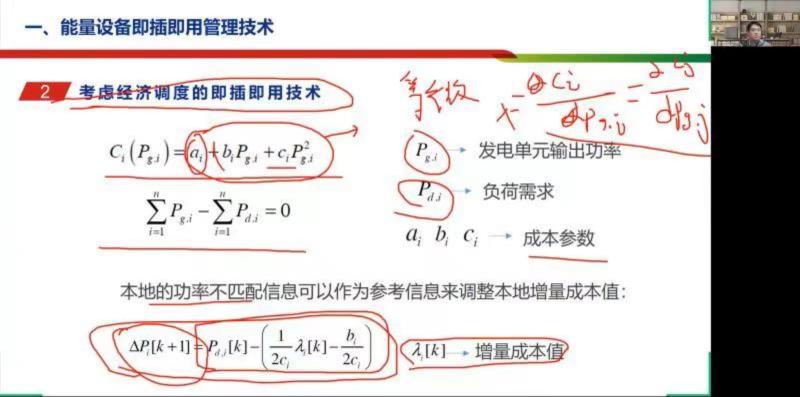 一、能量设备即插即用管理技术
2 考虑经济调度的即插即用技术
C_i(P_{g.i})=a_i+b_iP_{g.i}+c_iP_{g.i}^2
P_{g.i} 发电单元输出功率
P_{d.i} 负荷需求
\sum_{i=1}^{n}P_{g.i}-\sum_{i=1}^{n}P_{d.i}=0
a_i b_i c_i 成本参数
本地的功率不匹配信息可以作为参考信息来调整本地增量成本值：
ΔP_i[k+1]=P_{d.i}[k]-(\frac{1}{2c_i}λ_i[k]-\frac{b_i}{2c_i})
λ_i[k] 增量成本值